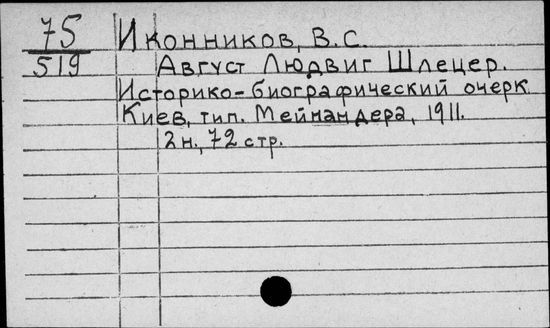 75
519
Иконников, В.С.
Август Людвиг Шлецер.
Историко-биографический очерк
Киев, тип. Мейнандера, 1911.
2 н., 72 стр.